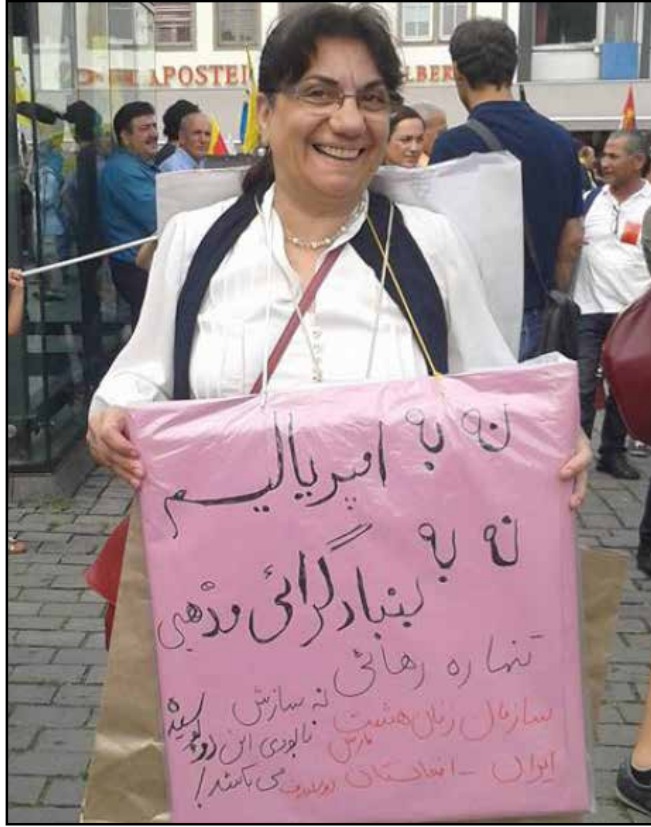 APOSTEL
نه به امپریالیسم
نه به
بنیادگرائی مذهبی
تنها ره رهائی
نه سازش
نابودی این دو پوسیده
می باشد!
سازمان زنان هشت مارس
ایران - افغانستان